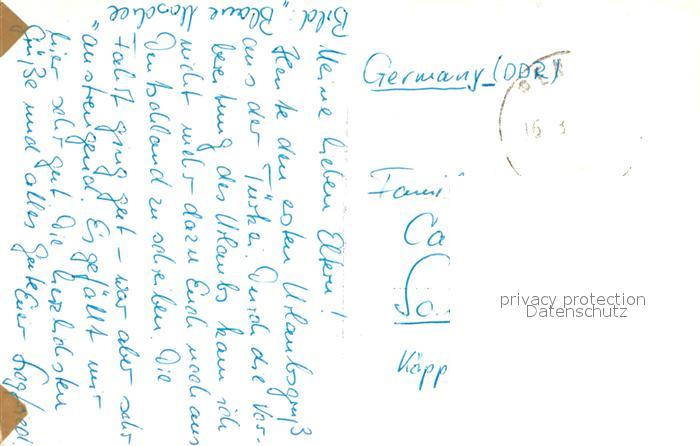 Bild: Blaue Moschee
Meine lieben Eltern!
Heute den ersten Urlaubsgruß
aus der Türkei. Durch die Vor-
bereitung des Urlaubs kam ich
nicht mehr dazu Euch noch aus
Deutschland zu schreiben. Die
Fahrt ging gut – war aber sehr
"anstrengend. Es gefällt mir
hier sehr gut. Die herzlichsten
Grüße und alles Gute Euer
Germany (DDR)
16
Fami
Ca
Käpp
privacy protection
Datenschutz